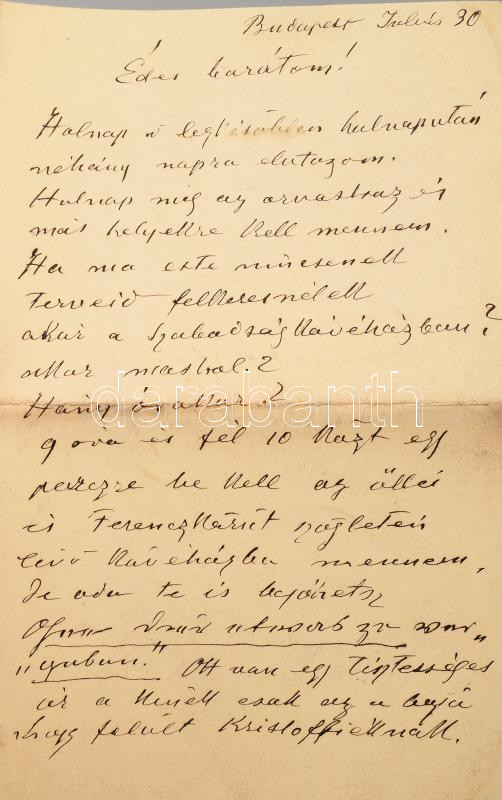 Budapest Julius 30
Édes barátom!
Holnap v legkésőbben holnapután
néhány napra elutazom.
Holnap még az orvoshoz és
más helyekre kell mennem.
Ha ma este nincsenek
terveid felkeresnélek
akár a Szabadság Kávéházban?
akár máshol?
Hány órakor?
9 óra és fél 10 közt egy
perczre be kell az üllői
és Ferenczkörút szögletén
lévő Kávéházba mennem,
de oda te is bejöhetsz
Ott van egy tisztességes
úr a kinek csak az a baja
hogy felült Kristoffieknak.
darabanth